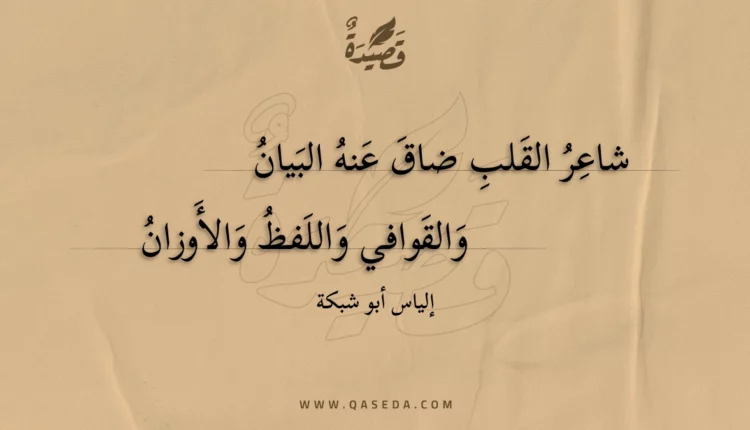 قَصِيدَةٌ
شاعِرُ القَلبِ ضاقَ عَنهُ البَيانُ
وَالقَوافي وَاللَفظُ وَالأَوزانُ
إلياس أبو شبكة
WWW.QASEDA.COM